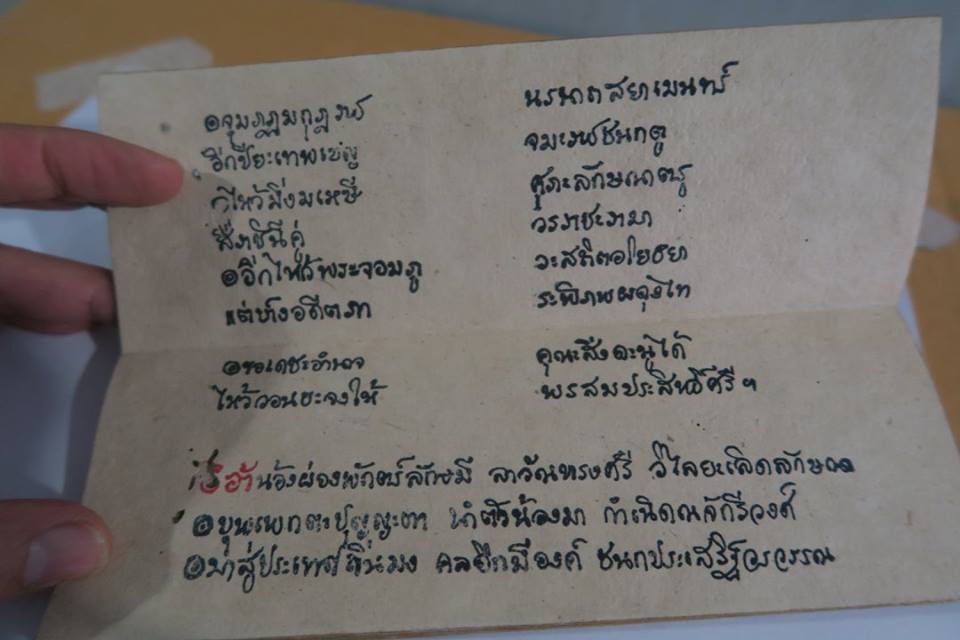 ๏จุมภฏมกุฏราช นรนาถสยามินทร์
อีกปิยะเทพเชญ จมะราชชนกตู
ก็ไหว้มิ่งมเหษี ศุภะลักษณาตรู
สิริราชินีคู่ วรราชะรามา
๏อีกไหว้พระจอมภู วะสถิตอโยธยา
แต่ห้างอดีตภา ระพิภพผดุงไท
๏ขอเดชะอำนาจ คุณะสิ่งคะนู้ได้
ไหว้วอนขะจงให้ พรสมประสิทธิ์ศรี ฯ
น้องผ่องพักตร์ลักษมี ลาวัณทรงศรี วิไลยะเลิดลักษณา
๏บุนเพกตะปุญญะตา นำตัวน้องมา กำเนิดณจักรีวงศ์
๏มาสู่ประเทศถิ่นมง คลอีกมีองค์ ชนกประเสริฐวรวรรณ